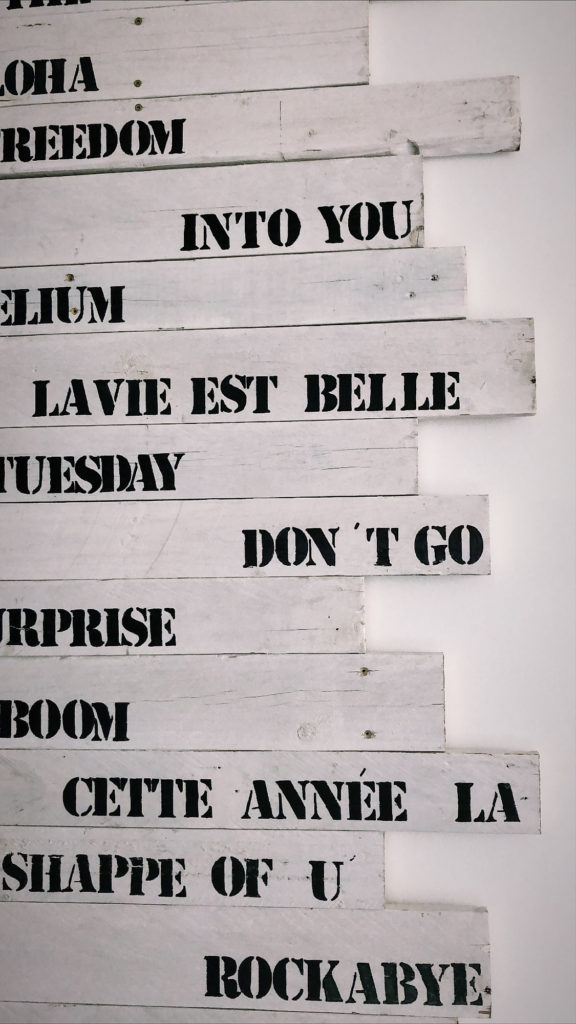 LOHA
FREEDOM
INTO YOU
ELIUM
LA VIE EST BELLE
TUESDAY
DON´T GO
URPRISE
BOOM
CETTE ANNÉE LA
SHAPPE OF U´
ROCKABYE